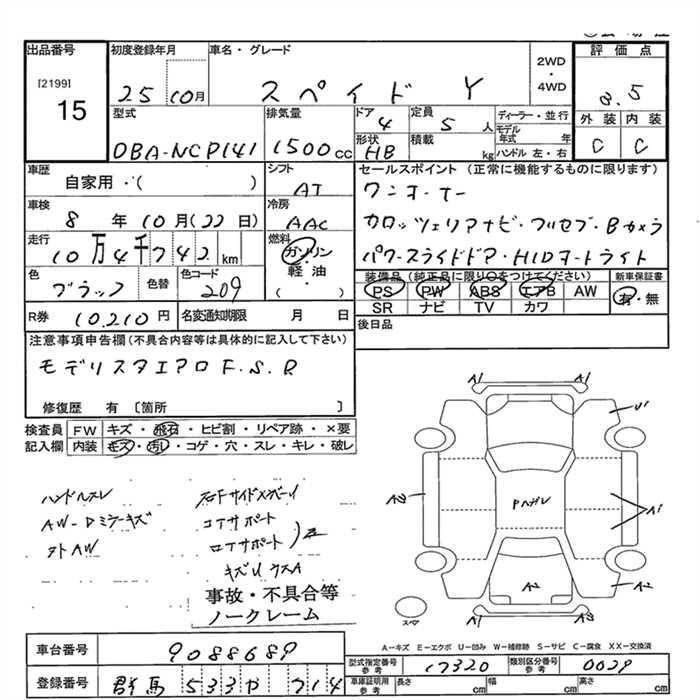 出品番号
[2199]
15
初度登録年月
25 10月
車名・グレード
スペイド Y
2WD
・
4WD
評価点
3.5
外装 内装
C C
型式
DBA-NCP141
排気量
1500cc
ドア
4
定員
5 人
形状
HB
積載
kg
ディーラー・並行
モデル年式 年
ハンドル 左・右
車歴
自家用・( )
シフト
AT
車検
8 年 10月(22日)
冷房
AAC
走行
10万4千742km
燃料
ガソリン
・
軽油
( )
色
ブラック
色替
色コード
209
R券 10,210円
名変通知期限 月 日
セールスポイント(正常に機能するものに限ります)
ワンオーナー
カロッツェリアナビ・フルセブ・Bカメラ
パワースライドドア・HIDオートライト
装備品(純正品に限り○をつけてください)
PS PW ABS エアB AW
SR ナビ TV カワ
新車保証書
有・無
後日品
注意事項申告欄(不具合内容等は具体的に記入して下さい)
モデリスタエアロF.S.R
修復歴 有 〔箇所 〕
検査員記入欄
FW キズ・飛石・ヒビ割・リペア跡・×要
内装 キズ・汚レ・コゲ・穴・スレ・キレ・破レ
ハンドルスレ
AW-Dミラーキズ
タトAW
右Fサイドメンバーリ
コアサポート
ロアサポート
キズU ウスA
事故・不具合等
ノークレーム
A1 A1
U1
A2
PAガレ
A1
A2
A2
A1 A1
スペア
A-キズ E-エクボ U-凹み W-補修跡 S-サビ C-腐食 XX-交換済
車台番号 9088689
登録番号 群馬 533 や 714
型式指定番号 参考 17320
類別区分番号 参考 0029
車庫証明用 参考
長さ cm 幅 cm 高さ cm